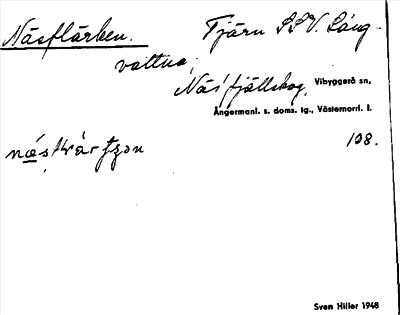 Näsflärken. Tjärn S.S.V. Lång-
vattnet,
Näsfjällskog, Vibyggerå sn,
Ångermanl. s. doms. tg., Västernorrl. l.
108.
Sven Hiller 1948